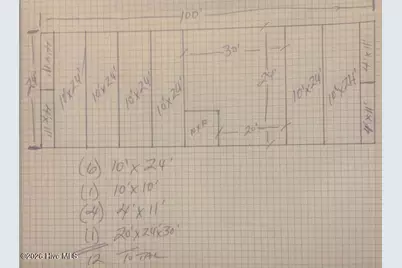 100'
24'
4'x11'
4'x11'
10'x24'
10'x24'
10'x24'
10'x24'
30'
24'
20'
10'x24'
10'x24'
4'x11'
4'x11'
(6) 10'x24'
(1) 10'x10'
(4) 4'x11'
(1) 20'x24'x30'
12 TOTAL
©2026 Hive MLS